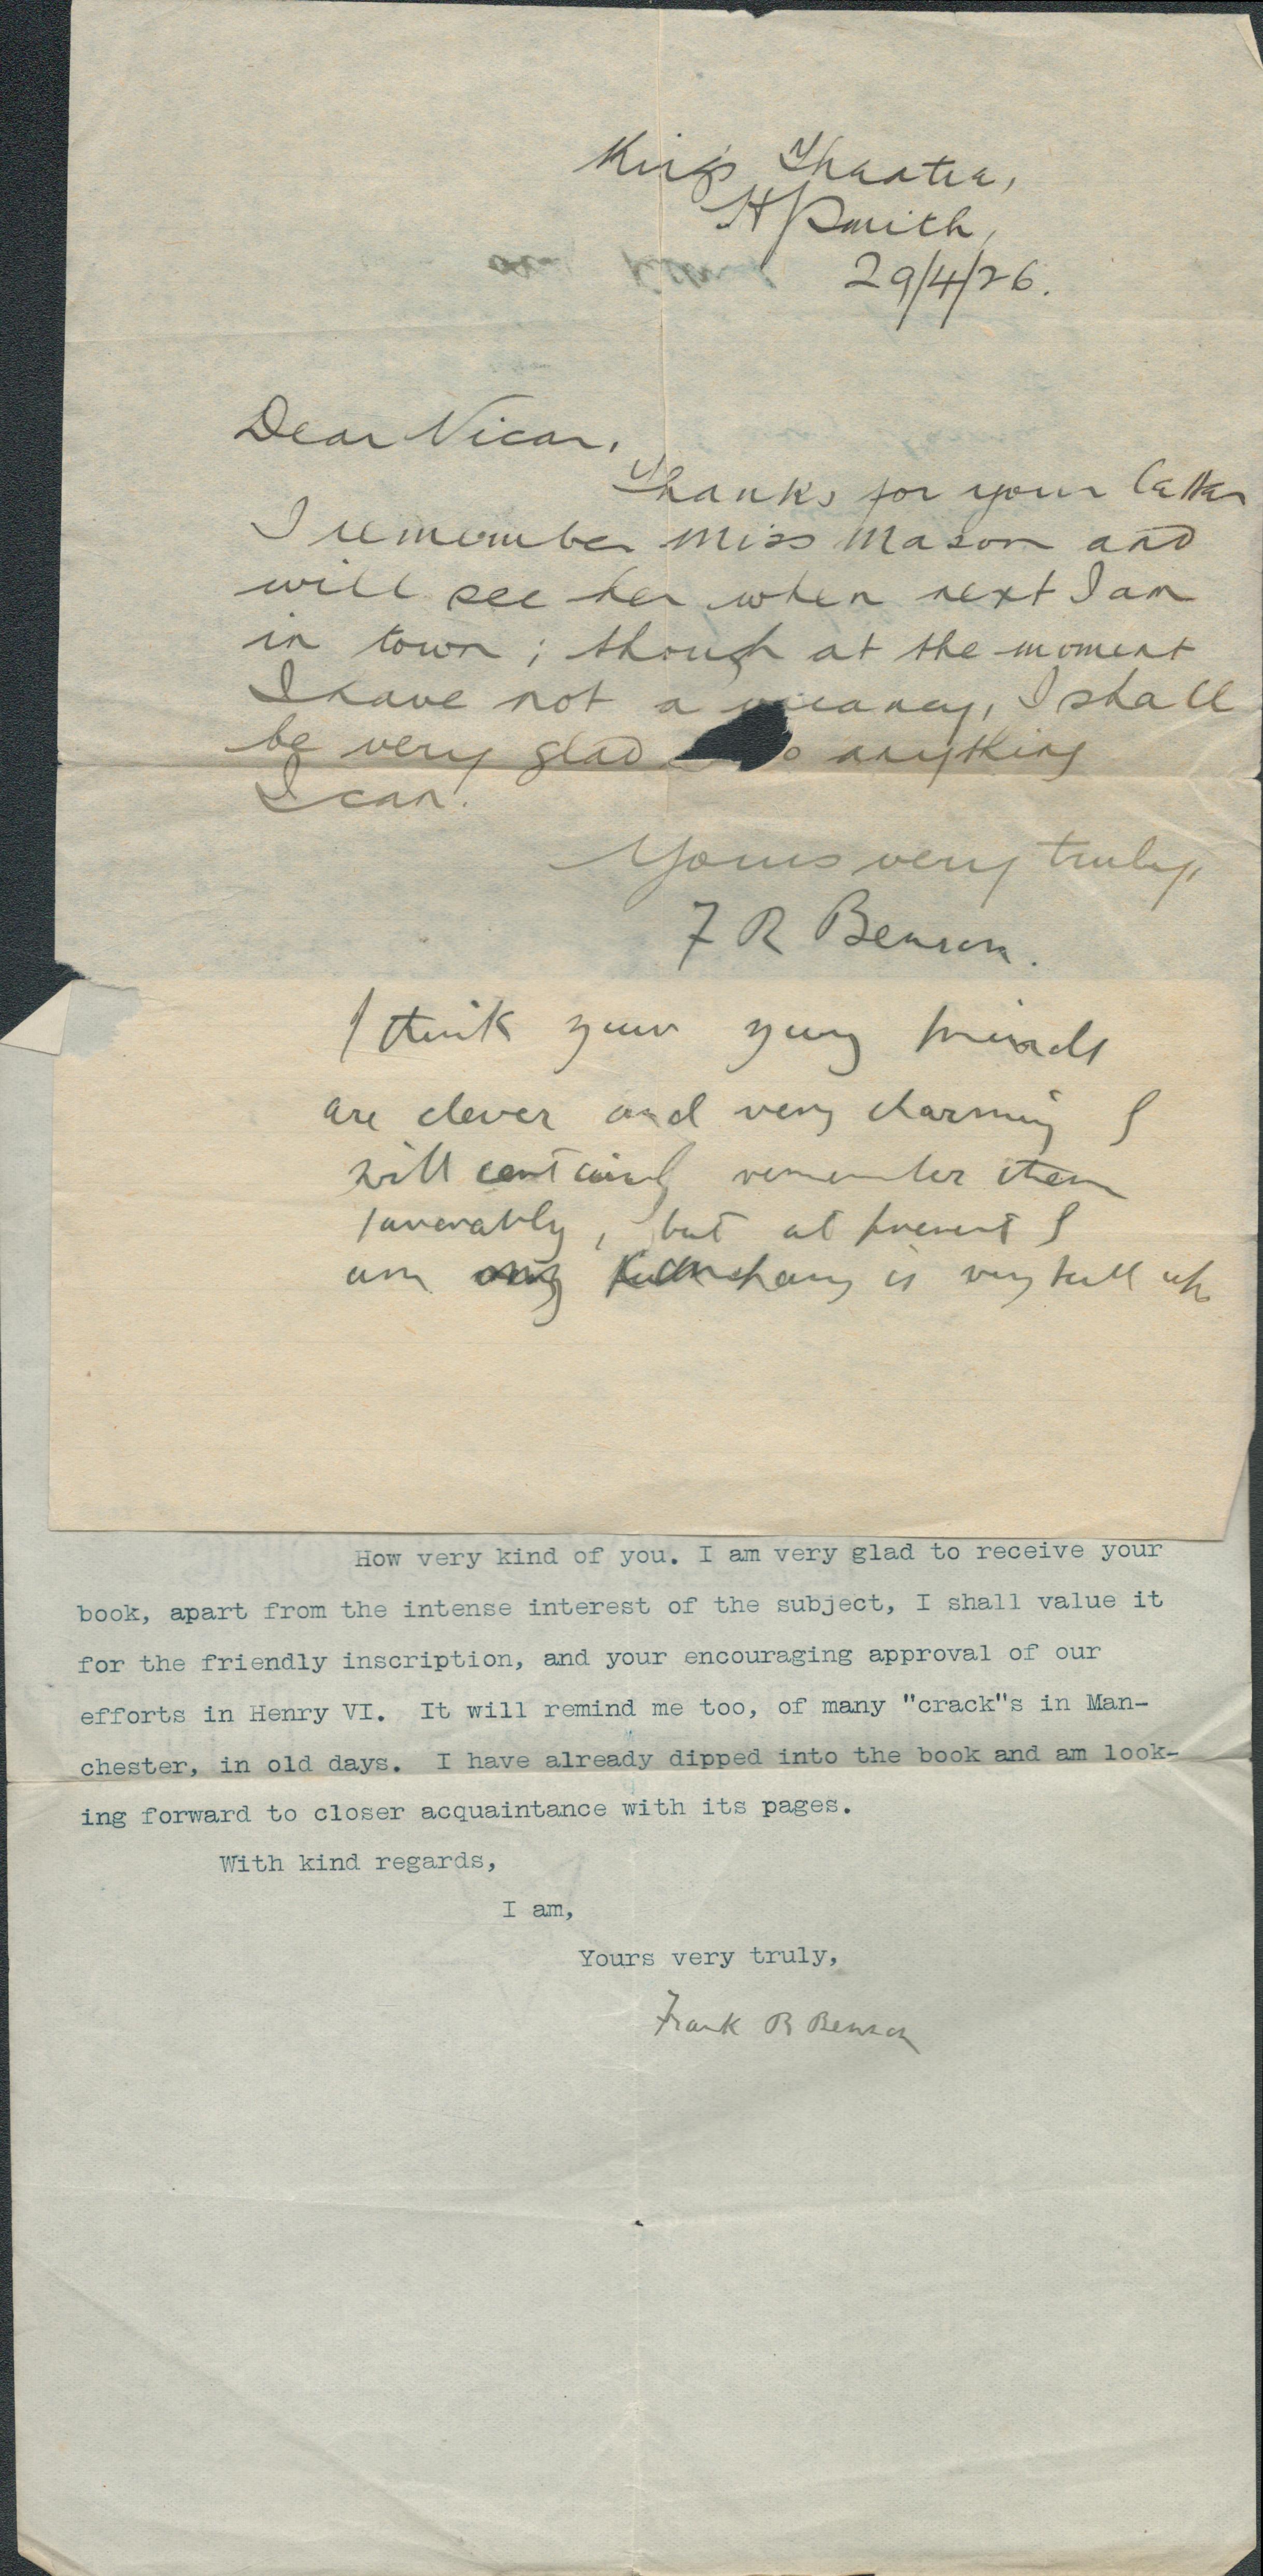 King's Theatre,
H/Smith,
29/4/26.
Dear Vicar,
Thanks for your letter
I remember Miss Mason and
will see her when next I am
in town; though at the moment
I have not a vacancy, I shall
be very glad o anything
I can.
Yours very truly,
F R Benson.
I think your young friends
are clever and very charming I
will certainly remember them
favourably, but at present I
am my company is very full up
How very kind of you. I am very glad to receive your
book, apart from the intense interest of the subject, I shall value it
for the friendly inscription, and your encouraging approval of our
efforts in Henry VI. It will remind me too, of many "crack"s in Man-
chester, in old days. I have already dipped into the book and am look-
ing forward to closer acquaintance with its pages.
With kind regards,
I am,
Yours very truly,
Frank R Benson